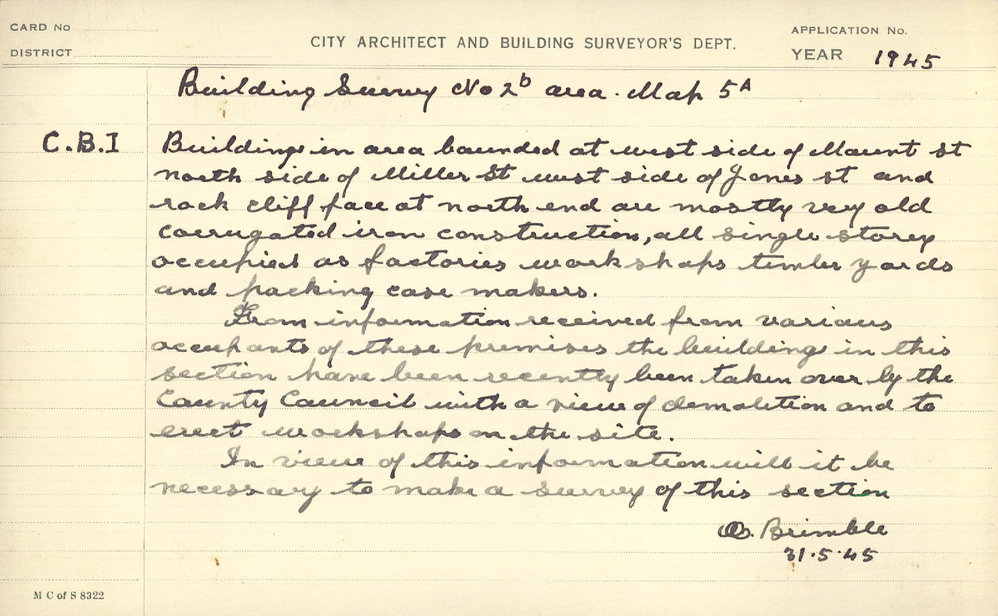 CARD No
DISTRICT
CITY ARCHITECT AND BUILDING SURVEYOR'S DEPT.
APPLICATION No.
YEAR 1945
Building Survey No 2b area. Map 5A
C.B.I Buildings in area bounded at west side of Mount st
north side of Miller St west side of Jones st and
rock cliff face at north end are mostly very old
corrugated iron construction, all single storey
occupied as factories workshops timber yards
and packing case makers.
From information received from various
occupants of these premises the buildings in this
section have been recently been taken over by the
County Council with a view of demolition and to
erect workshops on the site.
In view of this information will it be
necessary to make a survey of this section
Brimble
31.5.45
M C of S 8322